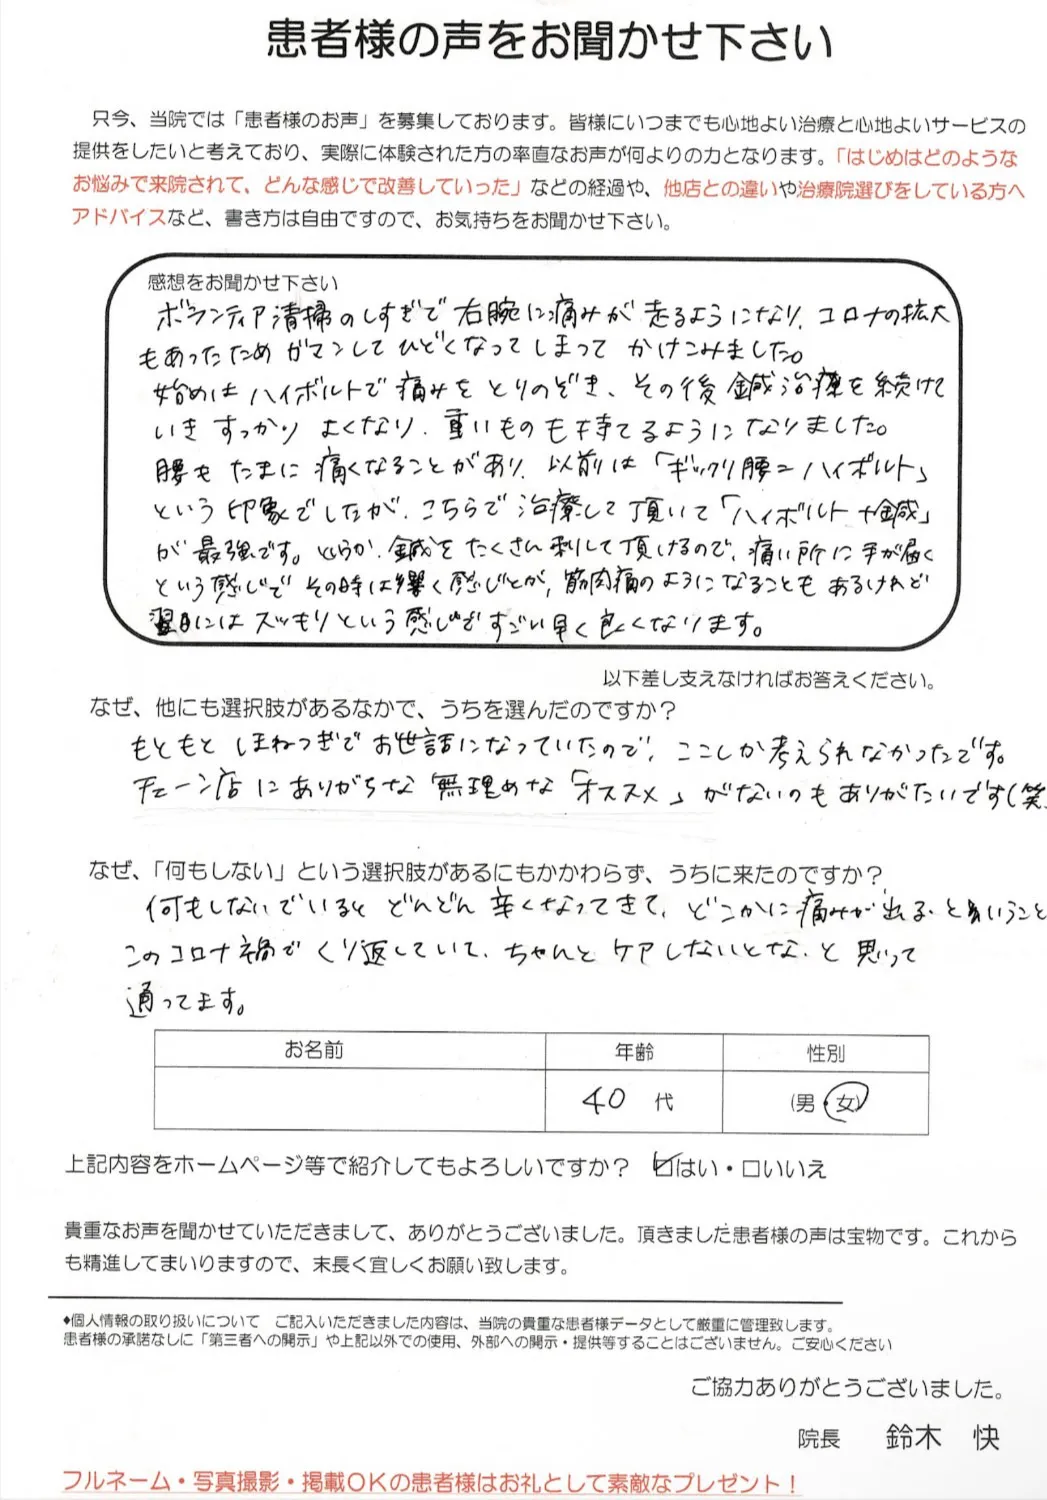 患者様の声をお聞かせ下さい
只今、当院では「患者様のお声」を募集しております。皆様にいつまでも心地よい治療と心地よいサービスの
提供をしたいと考えており、実際に体験された方の率直なお声が何よりの力となります。「はじめはどのような
お悩みで来院されて、どんな感じで改善していった」などの経過や、他店との違いや治療院選びをしている方へ
アドバイスなど、書き方は自由ですので、お気持ちをお聞かせ下さい。
感想をお聞かせ下さい
ボランティア清掃のしすぎで右腕に痛みが走るようになり、コロナの拡大
もあったためガマンしてひどくなってしまってかけこみました。
始めはハイボルトで痛みをとりのぞき、その後鍼治療を続けて
いきすっかりよくなり、重いものも持てるようになりました。
腰もたまに痛くなることがあり、以前は「ギックリ腰=ハイボルト」
という印象でしたが、こちらで治療して頂いて「ハイボルト+鍼」
が最強です。というか、鍼をたくさん刺して頂けるので、痛い所に手が届く
という感じでその時は響く感じとか、筋肉痛のようになることもあるけれど
翌日にはスッキリという感じですごい早く良くなります。
以下差し支えなければお答えください。
なぜ、他にも選択肢があるなかで、うちを選んだのですか?
もともとほねつぎでお世話になっていたので、ここしか考えられなかったです。
チェーン店にありがちな無理めな「オススメ」がないのもありがたいです(笑
なぜ、「何もしない」という選択肢があるにもかかわらず、うちに来たのですか?
何もしないでいるとどんどん辛くなってきて、どこかに痛みが出る、ということ
このコロナ禍でくり返していて、ちゃんとケアしないとな、と思って
通ってます。
お名前 年齢 性別
40代 (男・女)
上記内容をホームページ等で紹介してもよろしいですか? ☑はい・□いいえ
貴重なお声を聞かせていただきまして、ありがとうございました。頂きました患者様の声は宝物です。これから
も精進してまいりますので、末長く宜しくお願い致します。
♦個人情報の取り扱いについて ご記入いただきました内容は、当院の貴重な患者様データとして厳重に管理致します。
患者様の承諾なしに「第三者への開示」や上記以外での使用、外部への開示・提供等することはございません。ご安心ください
ご協力ありがとうございました。
院長 鈴木 快
フルネーム・写真撮影・掲載OKの患者様はお礼として素敵なプレゼント!